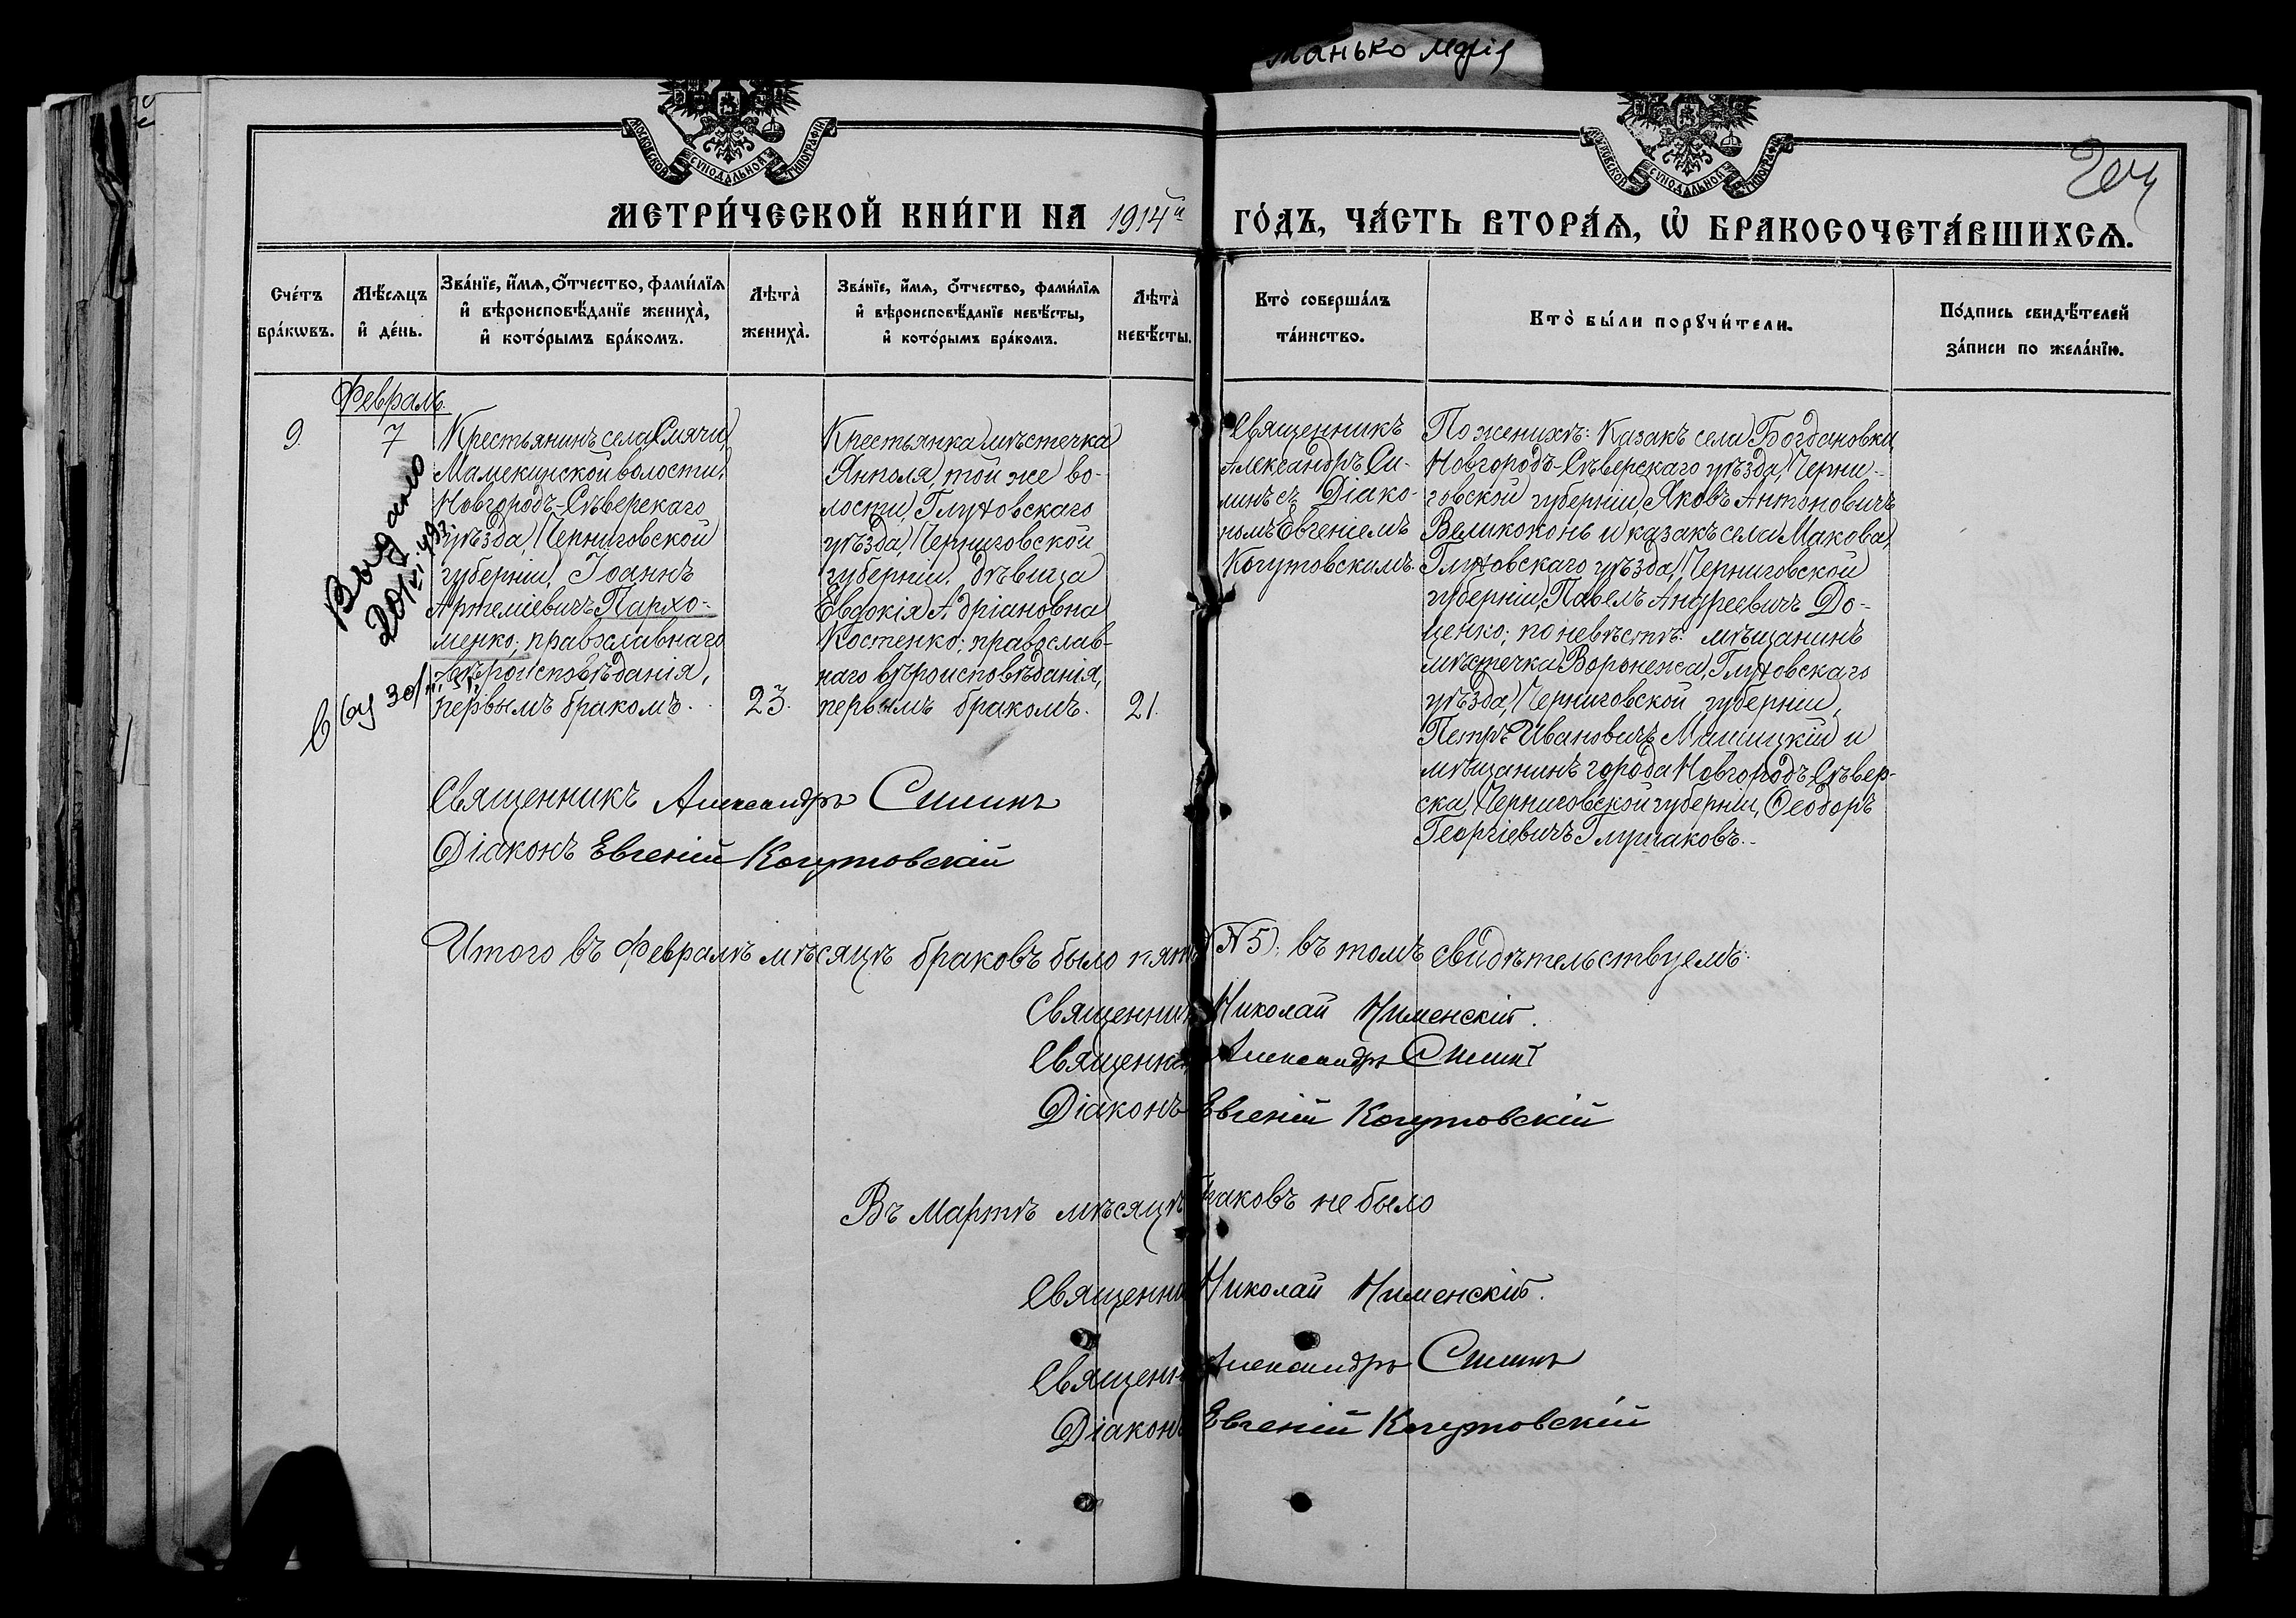 манько Марія
МОСКОВСКОЙ СѴНОДАЛЬНОЙ ТИПОГРАФІИ
МОСКОВСКОЙ СѴНОДАЛЬНОЙ ТИПОГРАФІИ
204
МЕТРИ́ЧЕСКОЙ КНИ́ГИ НА 1914й ГО́ДЪ, ЧА́СТЬ ВТОРА́Ѧ, Ѽ БРАКОСОЧЕТА́ВШИХСѦ.
Сче́тъ
бра́кѡвъ.
Мѣ́сяцъ
и҆ де́нь.
Зва́нїе, и҆́мѧ, ѻ҆́тчество, фами́лїѧ
и҆ вѣроисповѣ́данїе жениха̀,
и҆ кото́рымъ бра́комъ.
Лѣта̀
жениха̀.
Зва́нїе, и҆́мѧ, ѻ҆́тчество, фами́лїѧ
и҆ вѣроисповѣ́данїе невѣ́сты,
и҆ кото́рымъ бра́комъ.
Лѣта̀
невѣ́сты.
Кто̀ соверша́лъ
та́инство.
Кто̀ бы́ли порꙋчи́тели.
По́дпись свидѣ́телей
за́писи по жела́нїю.
Февраль.
9.
7
Крестьянинъ села Смячи,
Мамекинской волости,
Новгородъ-Сѣверскаго
уѣзда, Черниговской
губерніи, Іоаннъ
Артеміевичъ Пархо-
менко; православнаго
вѣроисповѣданія,
первымъ бракомъ.
23.
Крестьянка мѣстечка
Янполя, той же во-
лости, Глуховскаго
уѣзда, Черниговской
губерніи, дѣвица
Евдокія Адріановна
Костенко; православ-
наго вѣроисповѣданія,
первымъ бракомъ.
21.
Выдано
Священникъ
Александръ Си-
линъ съ Діако-
номъ Евгеніемъ
Когутовскимъ.
По женихѣ: Казакъ села Богдановки,
Новгородъ-Сѣверскаго уѣзда, Черни-
говской губерніи, Яковъ Антоновичъ
Великоконь и казакъ села Макова,
Глуховскаго уѣзда, Черниговской
губерніи, Павелъ Андреевичъ До-
ценко; по невѣстѣ: мѣщанинъ
мѣстечка Воронежа, Глуховскаго
уѣзда, Черниговской губерніи,
Петръ Ивановичъ и
мѣщанинъ города Новгородъ Сѣвер-
ска, Черниговской губерніи, Ѳеодоръ
Георгіевичъ Глушаковъ.
Священникъ Александръ Силинъ
Діаконъ Евгеній Когутовскій
Итого въ Февралѣ мѣсяцѣ браковъ было пять (№ 5); въ томъ свидѣтельствуемъ:
Священникъ Николай Нименскій.
Священникъ Александръ Силинъ
Діаконъ Евгеній Когутовскій
Въ Мартѣ мѣсяцѣ браковъ не было
Священникъ Николай Нименскій.
Священникъ Александръ Силинъ
Діаконъ Евгеній Когутовскій